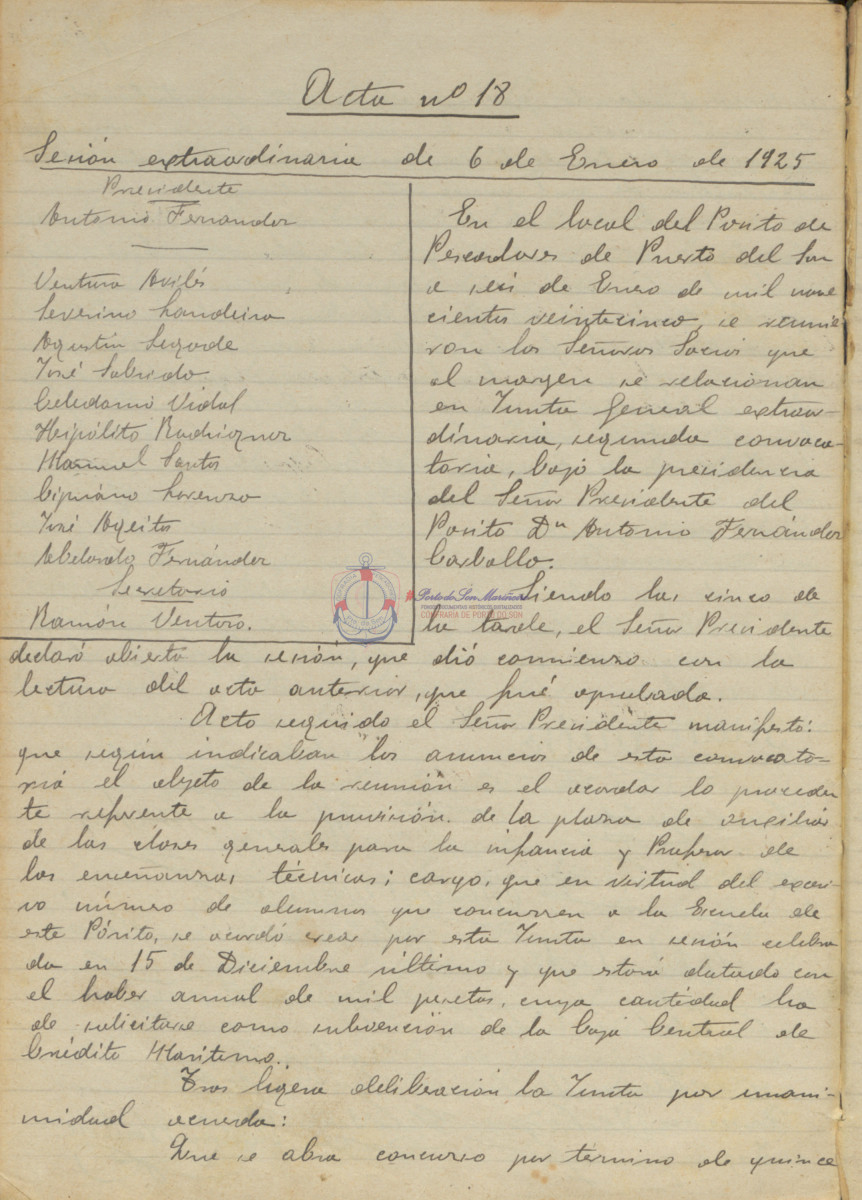 Acta nº 18
Sesión extraordinaria de 6 de Enero de 1925
Presidente
Antonio Fernandez
Ventura Avilés
Severino Landeira
Agustín Segade
José Sabrido
Celedonio Vidal
Heipólito Rodriguez
Manuel Santos
Cipriano Lorenzo
José Ageitos
Abelardo Fernández
Secretario
Ramón Ventoso.
En el local del Posito de
Pescadores de Puerto del Son
a seis de Enero de mil nove
cientos veinticinco, se reunie
ron los Señores Socios que
al margen se relacionan
en Junta General extraor-
dinaria, segunda convoca-
toria, bajo la presidencia
del Señor Presidente del
Posito Dn Antonio Fernández
Carballo.
Siendo las cinco de
la tarde, el Señor Presidente
declaró abierta la sesión, que dió comienzo con la
lectura del acta anterior, que fué aprobada.
Acto seguido el Señor Presidente manifestó:
que según indicaban los anuncios de esta convocato-
ria el objeto de la reunión es el acordar lo proceden
te referente a la provisión de la plaza de auxiliar
de las clases generales para la infancia y Profesor de
las enseñanzas técnicas; cargo, que en virtud del excesi-
vo número de alumnos que concurren a la Escuela de
este Pósito, se acordó crear por esta Junta en sesión celebra
da en 15 de Diciembre último y que estará dotado con
el haber annal de mil pesetas, cuya cantidad ha
de solicitarse como subvención de la Caja Central de
Crédito Maritimo.
Tras ligera deliberación la Junta por unani-
midad acuerda:
Que se abra concurso por termino de quince
Porto do Son Mariñeiro
FONDOS DOCUMENTAIS HISTÓRICOS DIXITALIZADOS
CONFRARÍA DE PORTO DO SON